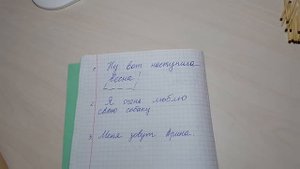 1. Ну вот наступила
весна!
2. Я очень люблю
свою собаку
3. Меня зовут Арина.